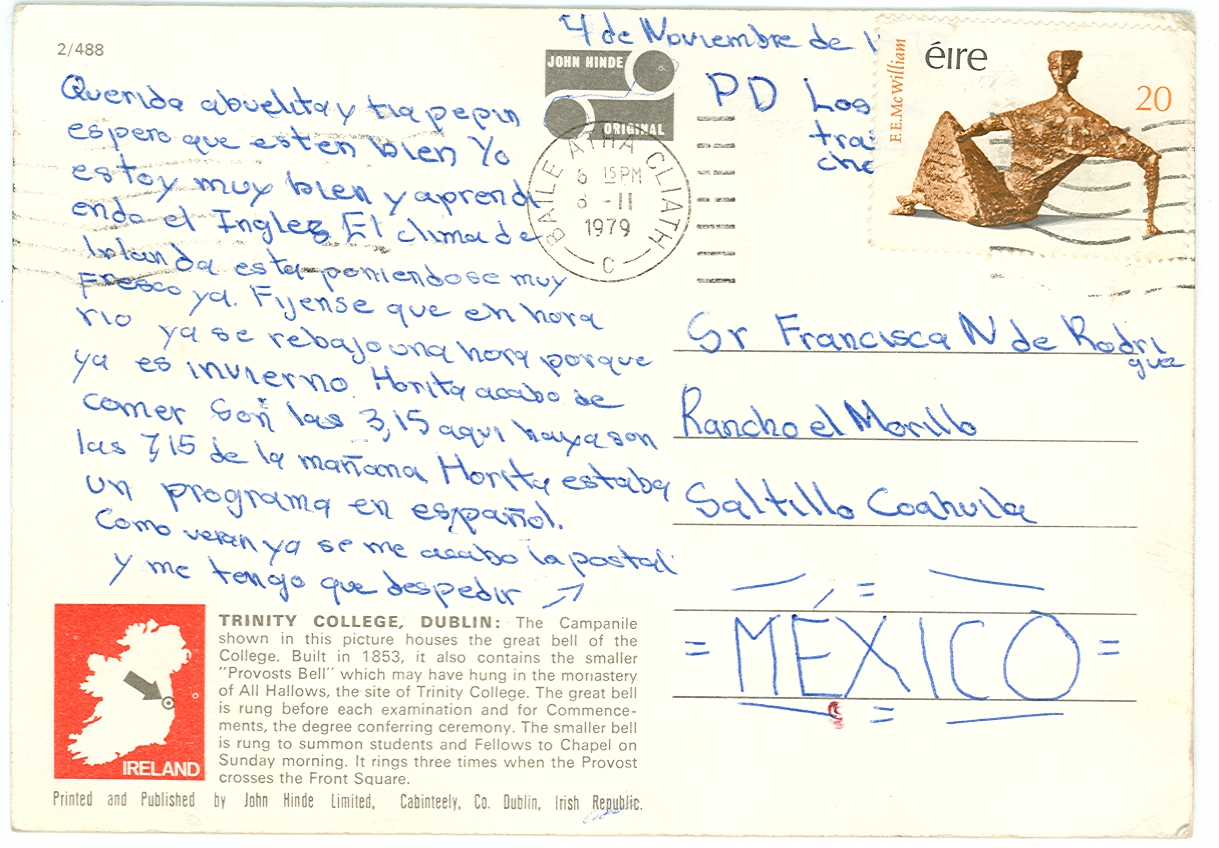 2/488
4 de Noviembre de 1
Querida abuelita y tia pepin
espero que esten bien Yo
estoy muy bien y aprend
endo el Ingles El clima de
Irlanda esta poniendose muy
Fresco ya. Fijense que en hora
rio ya se rebajo una hora porque
ya es invierno. Horita acabo de
comer Son las 3,15 aqui haya son
las 7,15 de la mañana Horita estaba
un programa en español.
Como veran ya se me acabo la postal
y me tengo que despedir →
JOHN HINDE
ORIGINAL
BAILE ATHA CLIATH
6 15PM
-11
1979
C
PD Los
tra
che
E.E. McWilliam
éire
20
Sr Francisca N de Rodri
guez
Rancho el Morillo
Saltillo Coahuila
= MÉXICO =
IRELAND
TRINITY COLLEGE, DUBLIN: The Campanile
shown in this picture houses the great bell of the
College. Built in 1853, it also contains the smaller
"Provosts Bell" which may have hung in the monastery
of All Hallows, the site of Trinity College. The great bell
is rung before each examination and for Commence-
ments, the degree conferring ceremony. The smaller bell
is rung to summon students and Fellows to Chapel on
Sunday morning. It rings three times when the Provost
crosses the Front Square.
Printed and Published by John Hinde Limited, Cabinteely, Co. Dublin, Irish Republic.